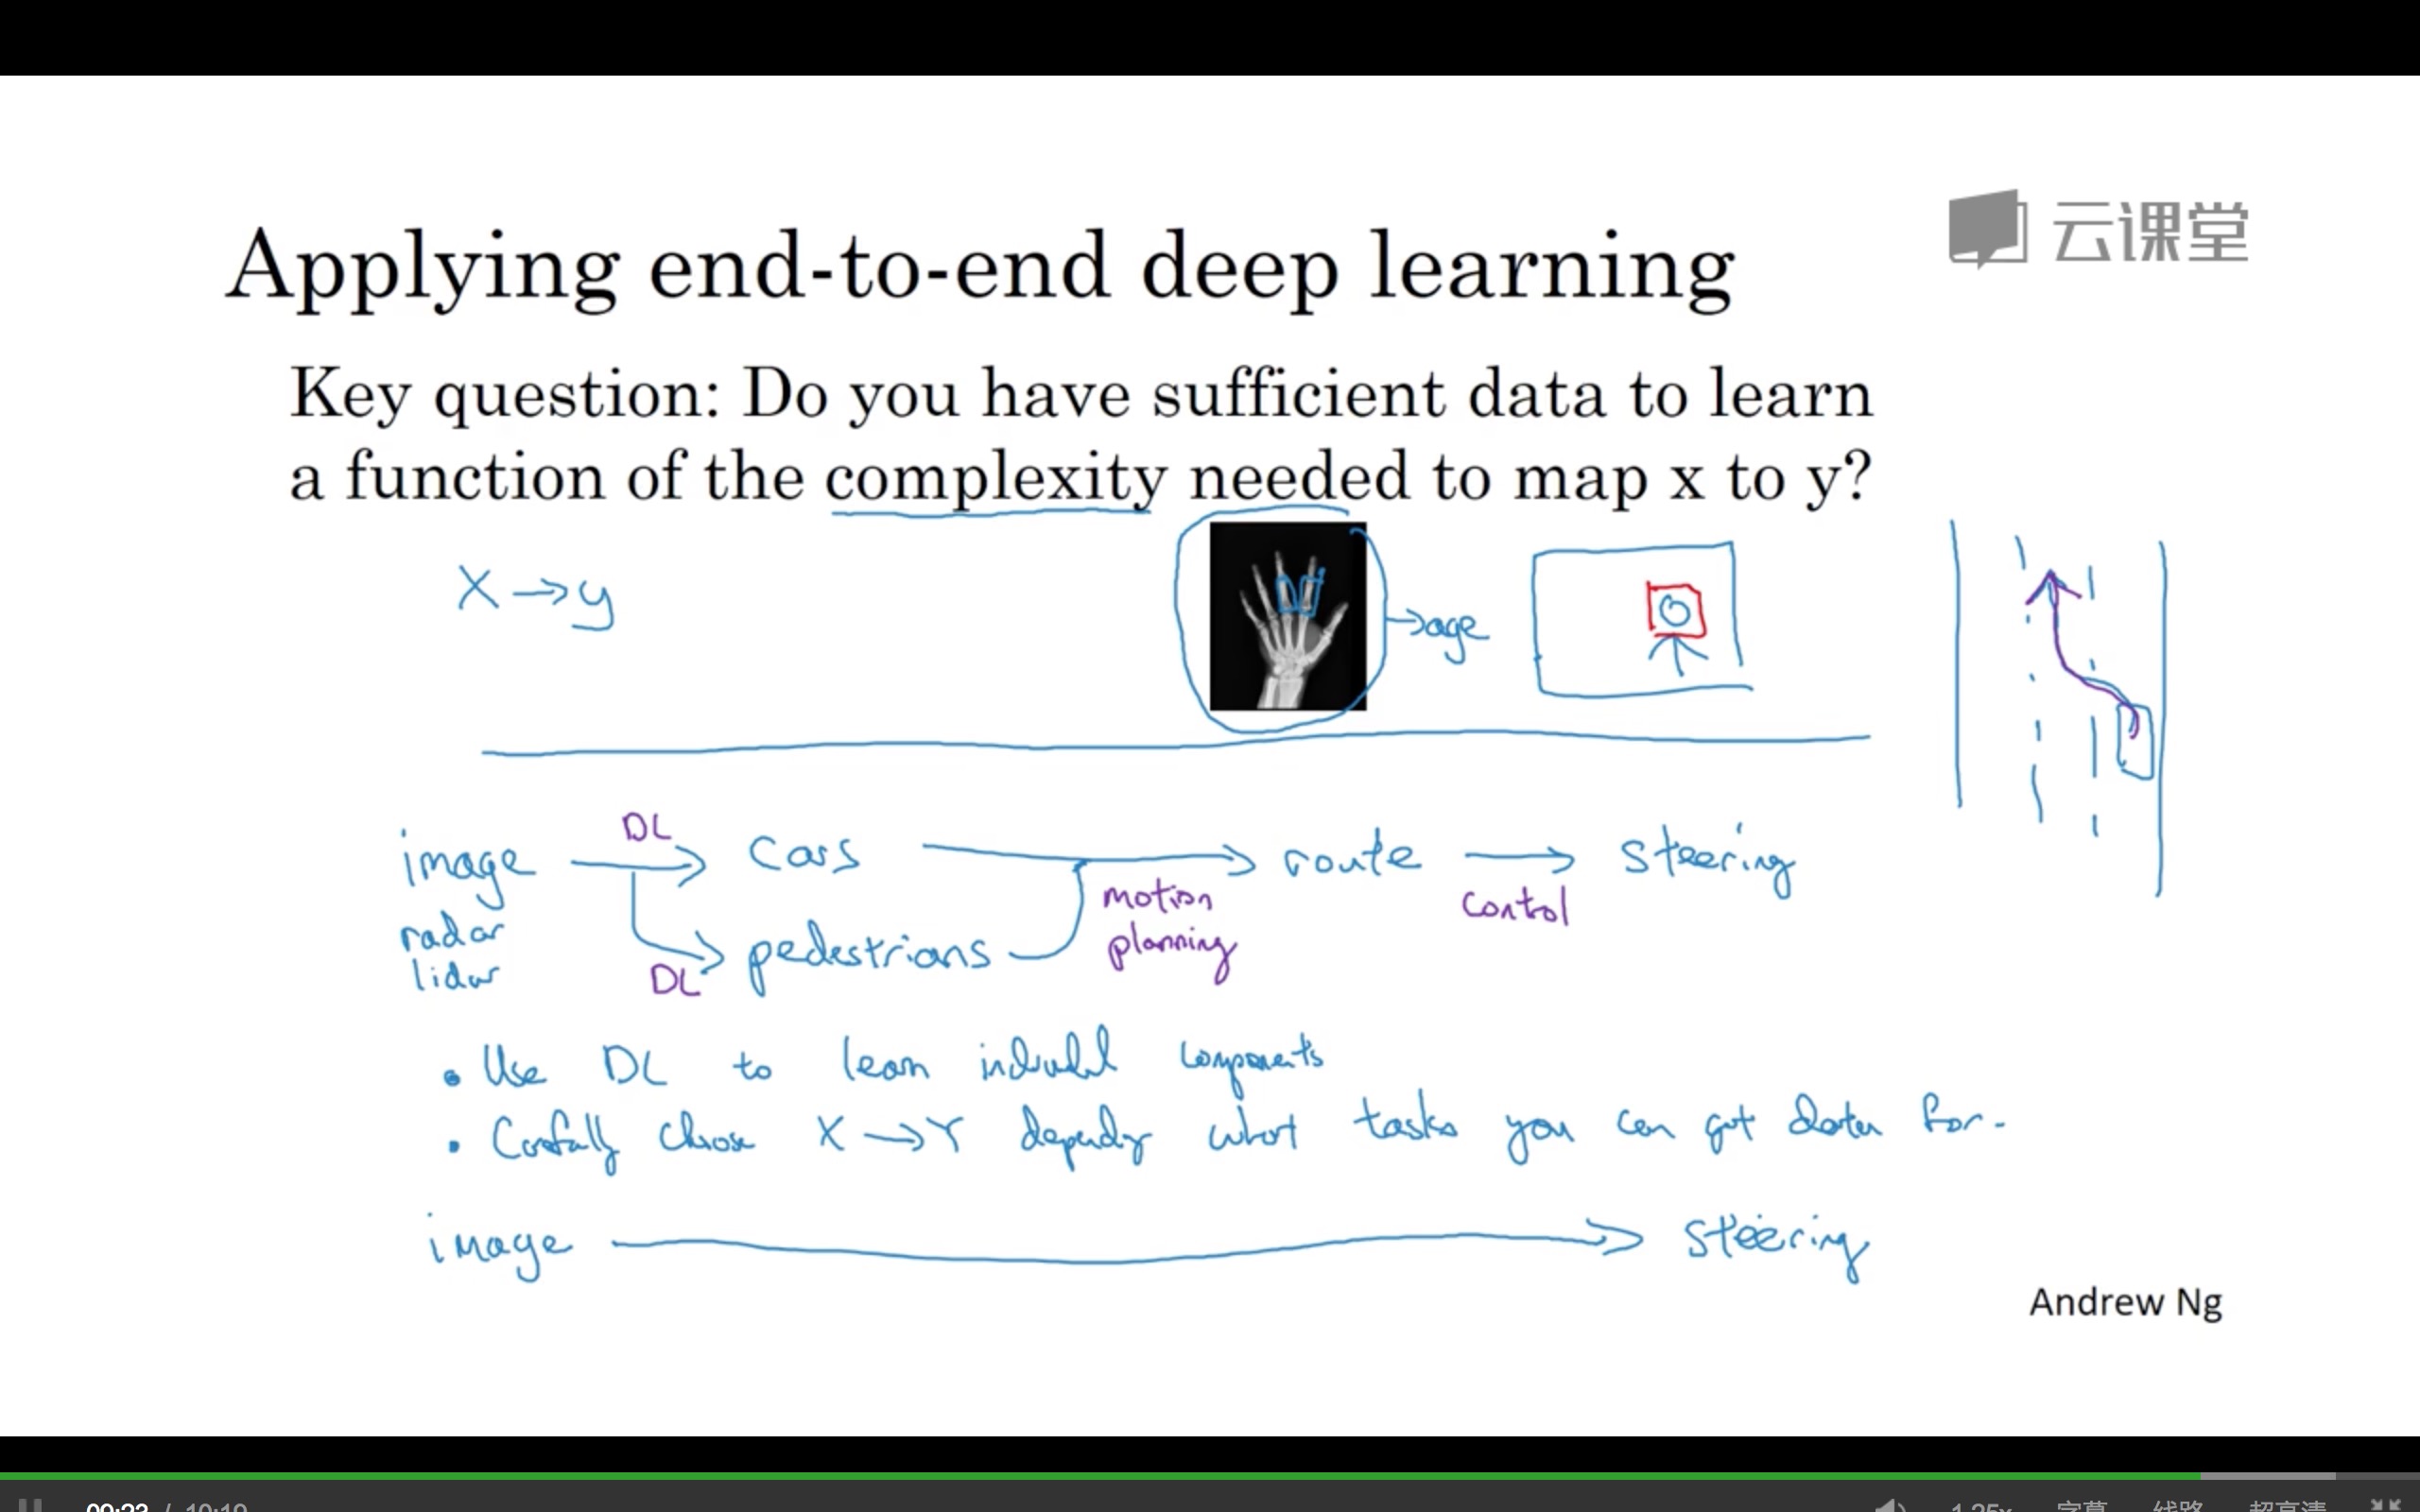 云课堂
Applying end-to-end deep learning
Key question: Do you have sufficient data to learn
a function of the complexity needed to map x to y?
X → y
→ age
image DL → cars → route → steering
radar
lidar
DL → pedestrians
motion
planning
control
• Use DL to learn individual components
• Carefully choose X → Y depending what tasks you can get data for.
image → steering
Andrew Ng
09:23 / 10:19
1.25x 字幕 线路 超高清